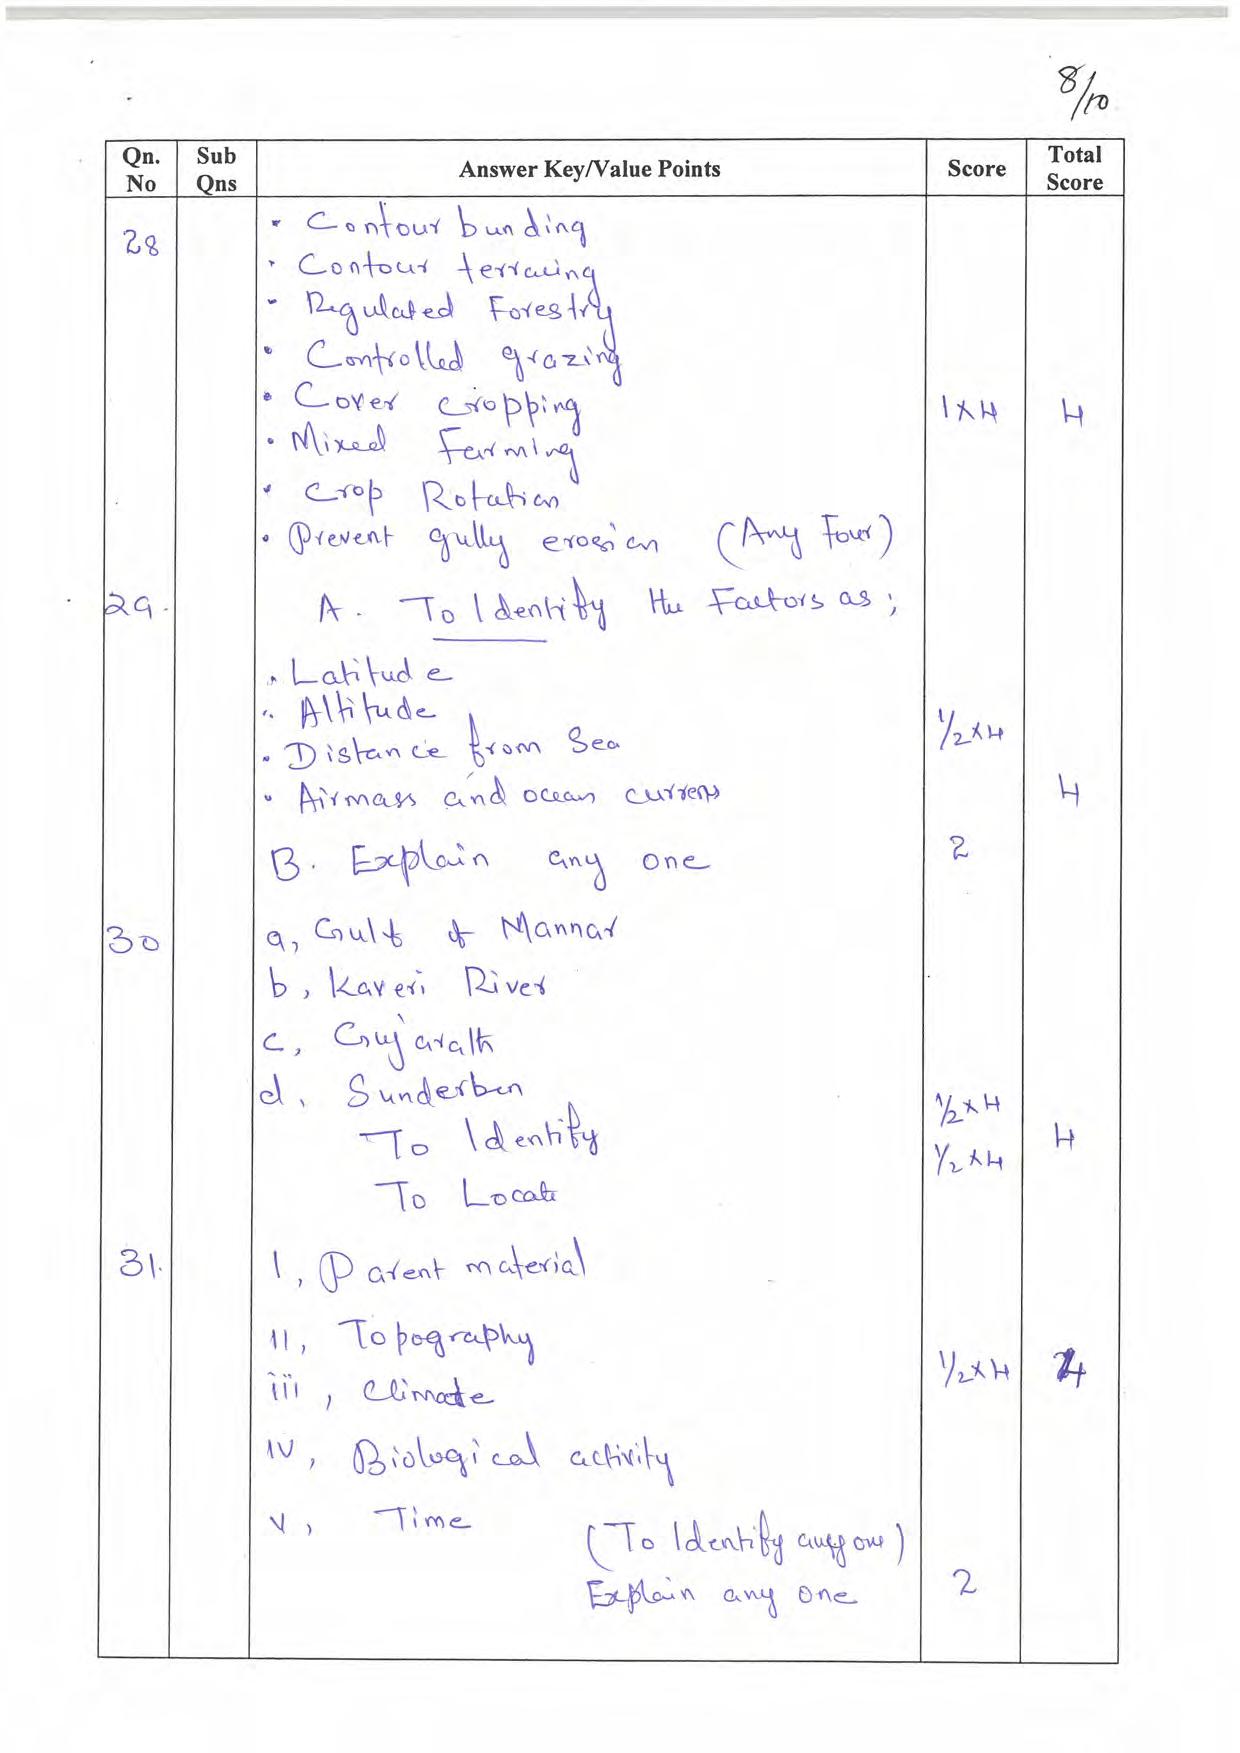 8/10
Qn. No
Sub Qns
Answer Key/Value Points
Score
Total Score
28
• Contour bunding
• Contour terracing
• Regulated Forestry
• Controlled grazing
• Cover cropping
1×4
4
• Mixed Farming
• Crop Rotation
• Prevent gully erosion (Any Four)
29.
A. To Identify the Factors as;
• Latitude
• Altitude
1/2×4
• Distance from Sea
• Airmass and ocean currents
4
B. Explain any one
2
30
a, Gulf of Mannar
b, Kaveri River
c, Gujarath
d, Sunderben
1/2×4
To Identify
4
1/2×4
To Locate
31.
I, Parent material
II, Topography
iii, Climate
1/2×4
4
IV, Biological activity
V, Time
(To Identify any one)
Explain any one
2